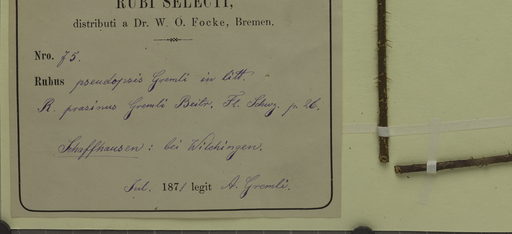 RUBI SELECTI,
distributi a Dr. W. O. Focke, Bremen.
Nro. 75.
Rubus pseudopsis Gremli in litt.
R. prasinus Gremli Beitr. Fl. Schwz. p. 26.
Schaffhausen: bei Wilchingen.
Jul. 1871 legit A. Gremli.